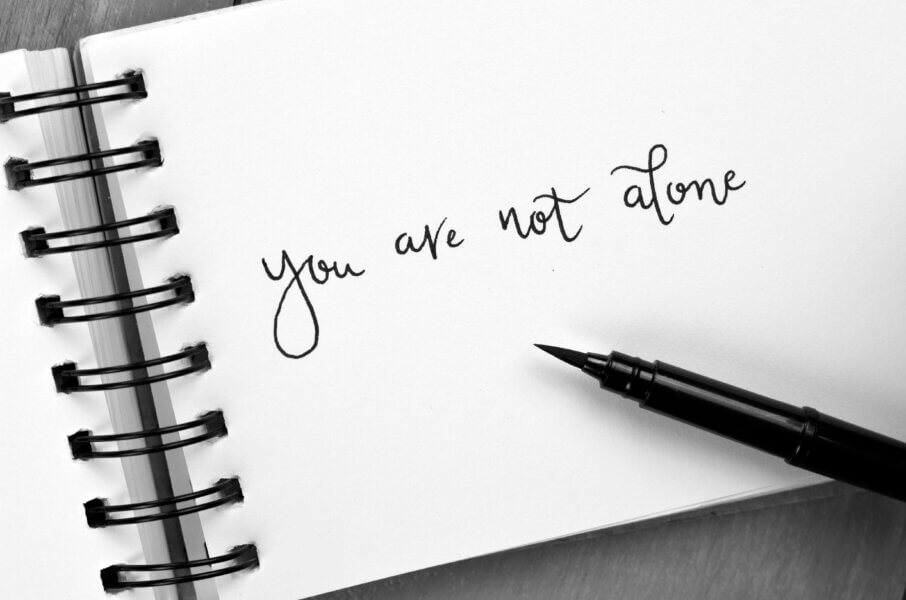 you are not alone